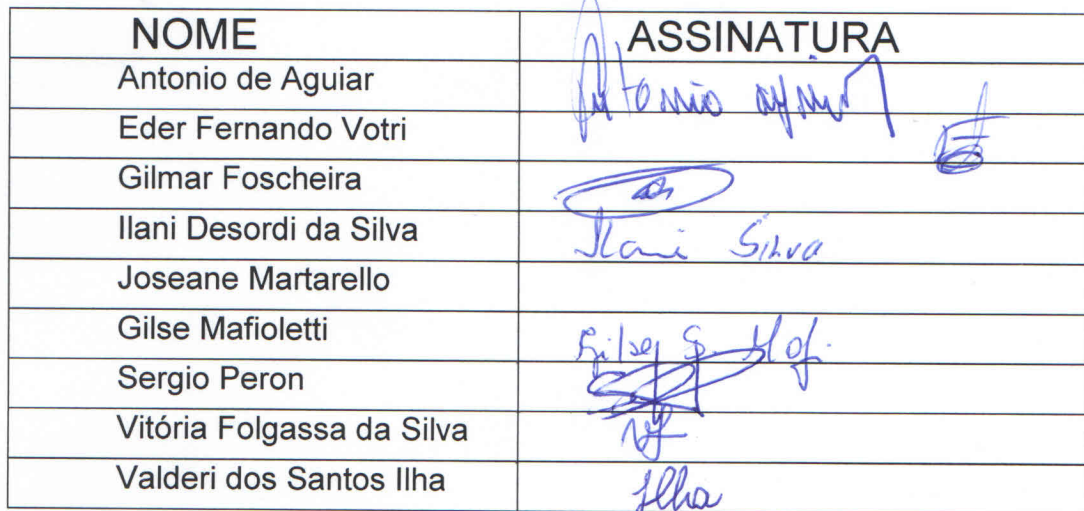 NOME ASSINATURA
Antonio de Aguiar Antonio
Eder Fernando Votri
Gilmar Foscheira
Ilani Desordi da Silva Ilani Silva
Joseane Martarello
Gilse Mafioletti Gilse
Sergio Peron
Vitória Folgassa da Silva
Valderi dos Santos Ilha Ilha